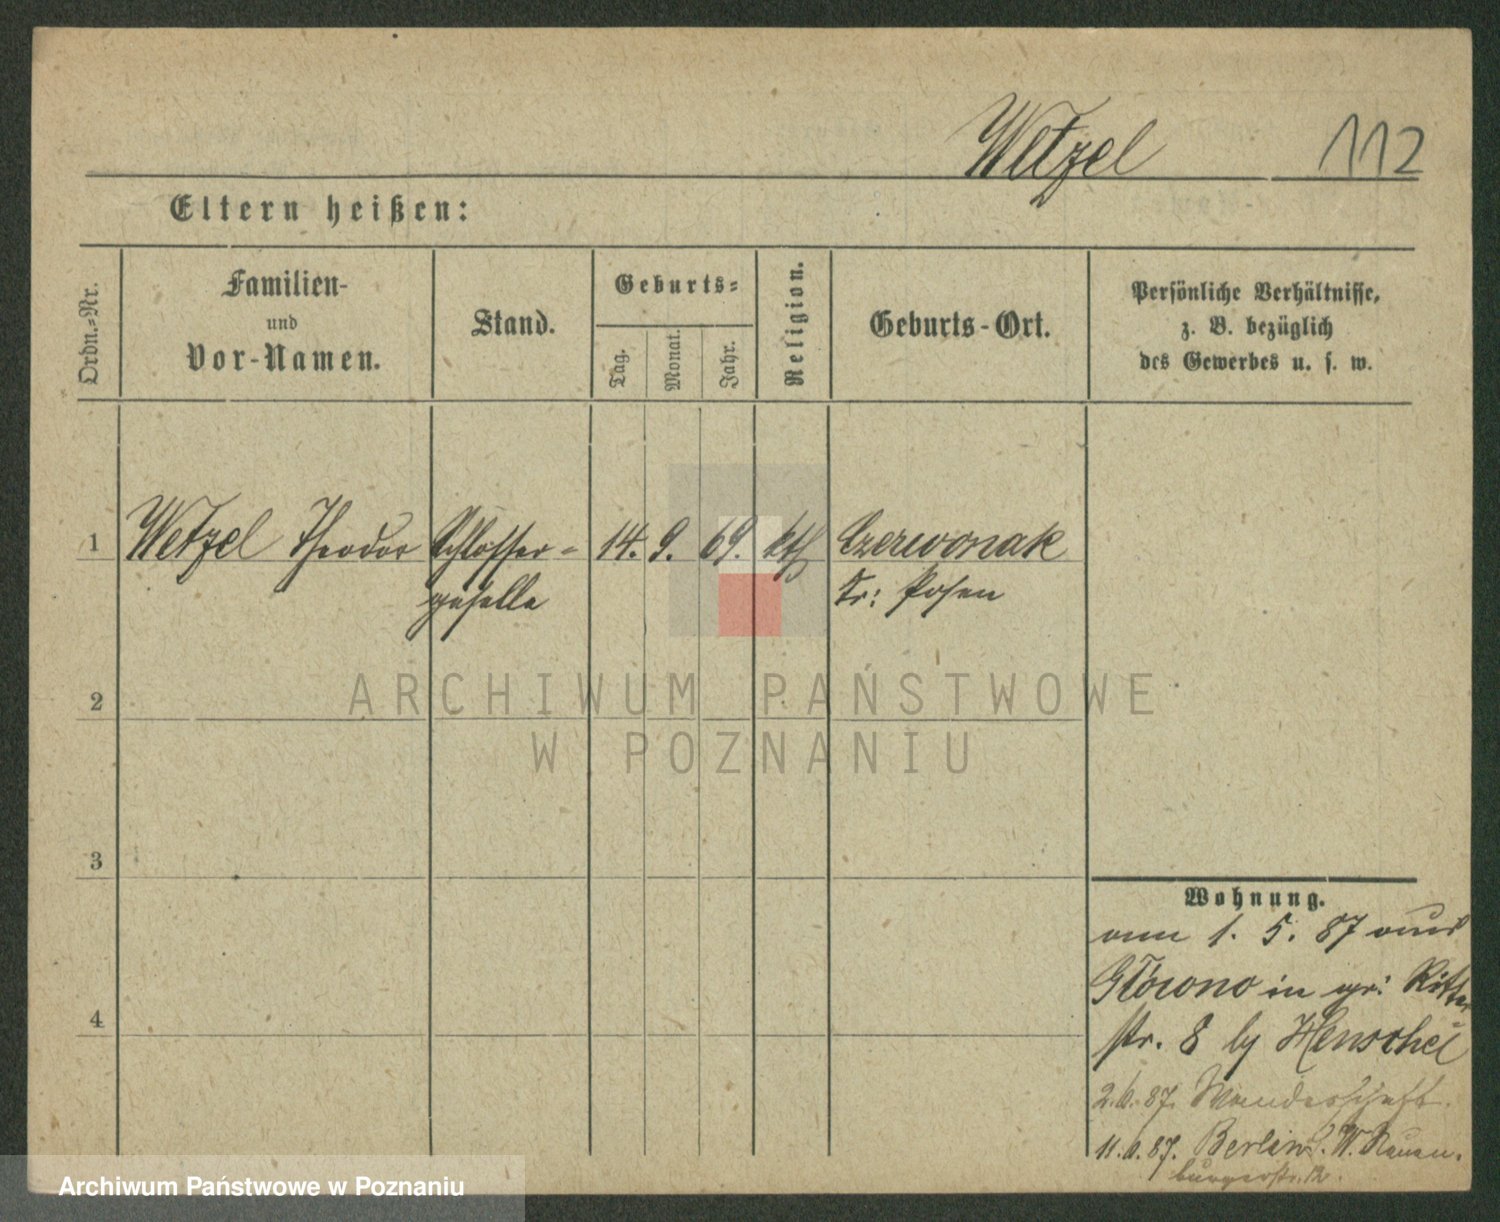 Wetzel 112
Eltern heißen:
Ordn.-Nr.
Familien-
und
Vor-Namen.
Stand.
Geburts-
Tag.
Monat.
Jahr.
Religion.
Geburts-Ort.
Persönliche Verhältnisse,
z. B. bezüglich
des Gewerbes u. s. w.
1 Wetzel Theodor Schlosser- 14. 9. 69. kth Czerwonak
geselle Kr: Posen
2
ARCHIWUM PAŃSTWOWE
W POZNANIU
3
Wohnung.
1. 5. 87 aus
Głowno in gr: Ritter
4
str. 8 by Henschel
2.6.87. Wanderschaft.
11.6.87. Berlin S. W.
burgerstr. 12.
Archiwum Państwowe w Poznaniu